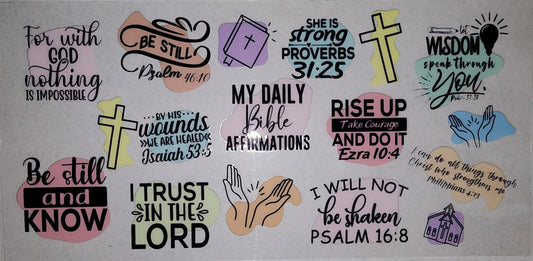 For with
GOD
nothing
IS IMPOSSIBLE
BE STILL
Psalm 46:10
SHE IS
strong
PROVERBS
31:25
let
WISDOM
speak through
You.
BY HIS
wounds
WE ARE HEALED
Isaiah 53:5
MY DAILY
Bible
AFFIRMATIONS
RISE UP
Take Courage
AND DO IT
Ezra 10:4
I can do all things through
Christ who strengthens me
Philippians 4:13
Be still
and
KNOW
I TRUST
IN THE
LORD
I WILL NOT
be shaken
PSALM 16:8